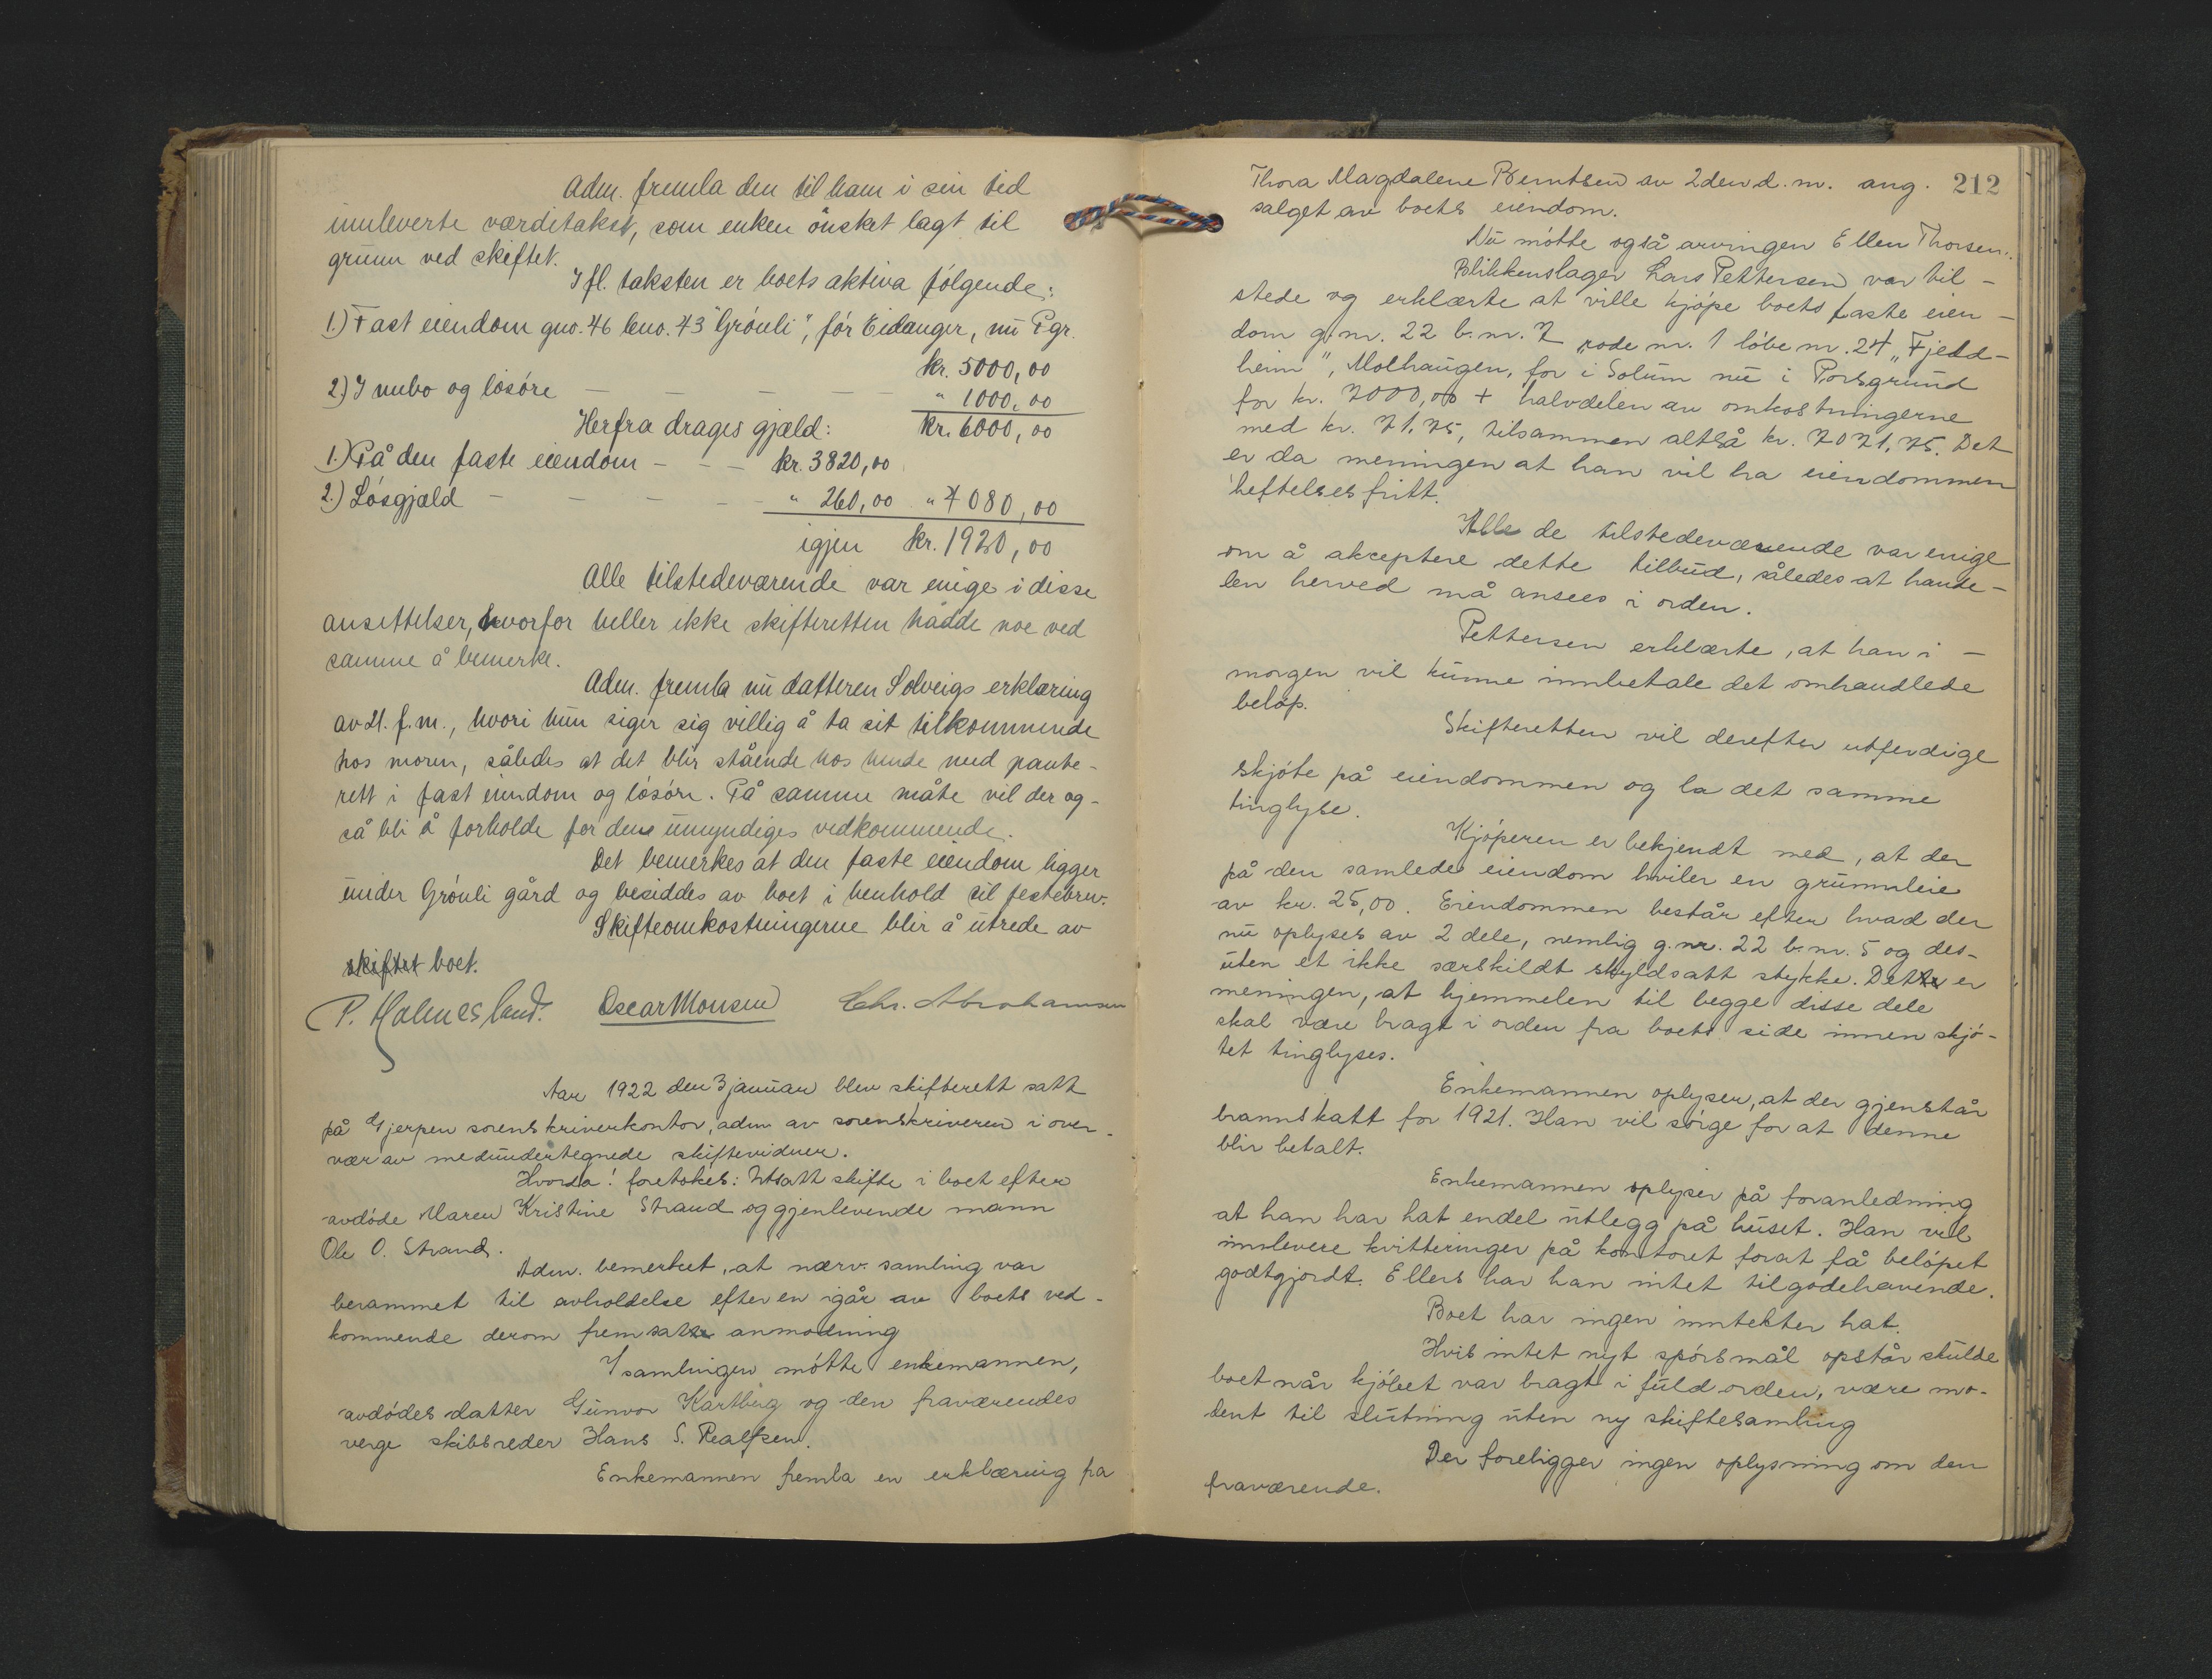 Adm. fremla den til ham i sin tid
innleverte værditakst, som enken ønsket lagt til
grunn ved skiftet.
Ifl. taksten er boets aktiva følgende:
1.) Fast eiendom gno. 46 bno. 43 "Grønli", før Eidanger, nu Pgr.
kr. 5000,00
2.) Innbo og løsøre — — — — " 1000,00
Herfra drages gjæld: kr. 6000,00
1.) På den faste eiendom - - - kr. 3820,00
2.) Løsgjæld - - - - - " 260,00 " 4080,00
igjen kr. 1920,00
Alle tilstedeværende var enige i disse
ansettelser, hvorfor heller ikke skifteretten hadde noe ved
samme å bemerke.
Adm. fremla nu datteren Solveigs erklæring
av 21. f.m., hvori hun siger sig villig å ta sit tilkommende
hos moren, således at det blir stående hos hende med pante-
rett i fast eiendom og løsøre. På samme måte vil der og-
så bli å forholde for den umyndiges vedkommende.
Det bemerkes at den faste eiendom ligger
under Grønli gård og besiddes av boet i henhold til festebrev.
Skifteomkostningerne blir å utrede av
skiftet boet.
P. Holmesland. Oscar Monsen Chr. Abrahamsen
Aar 1922 den 3 januar blev skifterett satt
på Gjerpen sorenskriverkontor, adm. av sorenskriveren i over-
vær av medundertegnede skiftevidner.
Hvorda! foretokes: Utsatt skifte i boet efter
avdøde Maren Kristine Strand og gjenlevende mann
Ole O. Strand.
Adm. bemerket, at nærv. samling var
berammet til avholdelse efter en igår av boets ved-
kommende derom fremsatt anmodning
I samlingen møtte enkemannen,
avdødes datter Gunvor Kartberg og den fraværendes
verge skibsreder Hans S. Realfsen.
Enkemannen fremla en erklæring fra
212
Thora Magdalene Berntsen av 2den d.m. ang.
salget av boets eiendom.
Nu møtte også arvingen Ellen Thorsen.
Blikkenslager Lars Pettersen var til-
stede og erklærte at ville kjøpe boets faste eien-
dom g.nr. 22 b.nr. 7 rode nr. 1 løbe nr. 24 „Fjeld-
heim", Molhaugen, før i Solum nu i Porsgrund
for kr. 7000,00 + halvdelen av omkostningerne
med kr. 71,75, tilsammen altså kr. 7071,75. Det
er da meningen at han vil ha eiendommen
heftelsesfritt.
Alle de tilstedeværende var enige
om å akceptere dette tilbud, således at hande-
len herved må ansees i orden.
Pettersen erklærte, at han i-
morgen vil kunne innbetale det omhandlede
beløp.
Skifteretten vil derefter utferdige
skjøte på eiendommen og la det samme
tinglyse.
Kjøperen er bekjendt med, at der
på den samlede eiendom hviler en grunnleie
av kr. 25,00. Eiendommen består efter hvad der
nu oplyses av 2 dele, nemlig g.nr. 22 b.nr. 5 og des-
uten et ikke særskildt skyldsatt stykke. Det er
meningen, at hjemmelen til begge disse dele
skal være bragt i orden fra boets side innen skjø-
tet tinglyses.
Enkemannen oplyser, at der gjenstår
brannskatt for 1921. Han vil sørge for at denne
blir betalt.
Enkemannen oplyser på foranledning
at han har hat endel utlegg på huset. Han vil
innlevere kvitteringer på kontoret forat få beløpet
godtgjordt. Ellers har han intet tilgodehavende.
Boet har ingen inntekter hat.
Hvis intet nyt spørsmål opstår skulde
boet når kjøbet var bragt i fuld orden, være mo-
dent til slutning uten ny skiftesamling
Der foreligger ingen oplysning om den
fraværende.